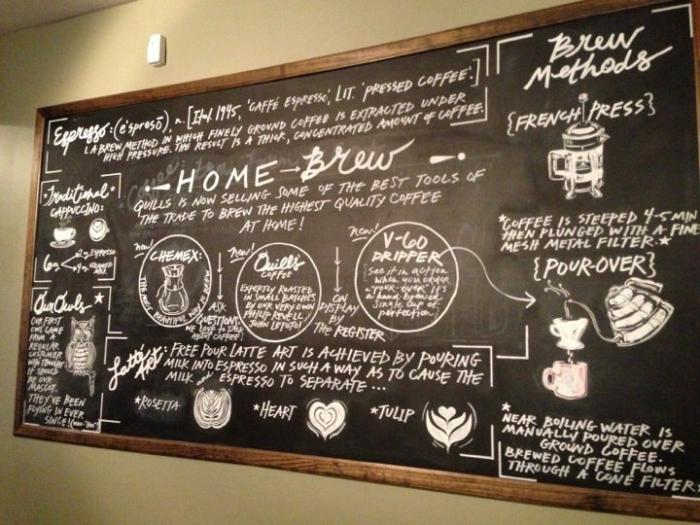 Espresso: (e'spresō) n. [Ital. 1945, 'CAFFÉ ESPRESSO', LIT. 'PRESSED COFFEE'.]
A BREW METHOD IN WHICH FINELY GROUND COFFEE IS EXTRACTED UNDER
HIGH PRESSURE. THE RESULT IS A THICK, CONCENTRATED AMOUNT OF COFFEE.
HOME Brew
QUILLS IS NOW SELLING SOME OF THE BEST TOOLS OF
THE TRADE TO BREW THE HIGHEST QUALITY COFFEE
AT HOME!
Traditional
CAPPUCCINO:
6oz
2oz ESPRESSO
4oz
MILK
Our Owls
OUR FIRST
OWL CAME
FROM A
REGULAR
CUSTOMER
WHO THOUGHT
IT SHOULD
BE OUR
MASCOT.
THEY'VE BEEN
FLYING IN EVER
SINCE!
new!
CHEMEX:
THE MOST BEAUTIFUL WAY TO BREW
ASK
QUESTIONS,
WE LOVE TO TALK
ABOUT COFFEE!
new!
Quills
COFFEE
EXPERTLY ROASTED
IN SMALL BATCHES
BY OUR VERY OWN
PHILIP REVELL /
JOHN LETOTO!
ON
DISPLAY
BY
THE REGISTER
new!
V-60
DRIPPER
See it in action
when you order
a "pour-over". It's
a hand-brewed
single cup of
perfection.
Latté
ART:
FREE POUR LATTE ART IS ACHIEVED BY POURING
MILK INTO ESPRESSO IN SUCH A WAY AS TO CAUSE THE
MILK and ESPRESSO TO SEPARATE...
*ROSETTA
*HEART
*TULIP
Brew
Methods
{FRENCH PRESS}
*COFFEE IS STEEPED 4-5 MIN
THEN PLUNGED WITH A FINE
MESH METAL FILTER.*
{POUR-OVER}
*NEAR BOILING WATER IS
MANUALLY POURED OVER
GROUND COFFEE.
BREWED COFFEE FLOWS
THROUGH A CONE FILTER